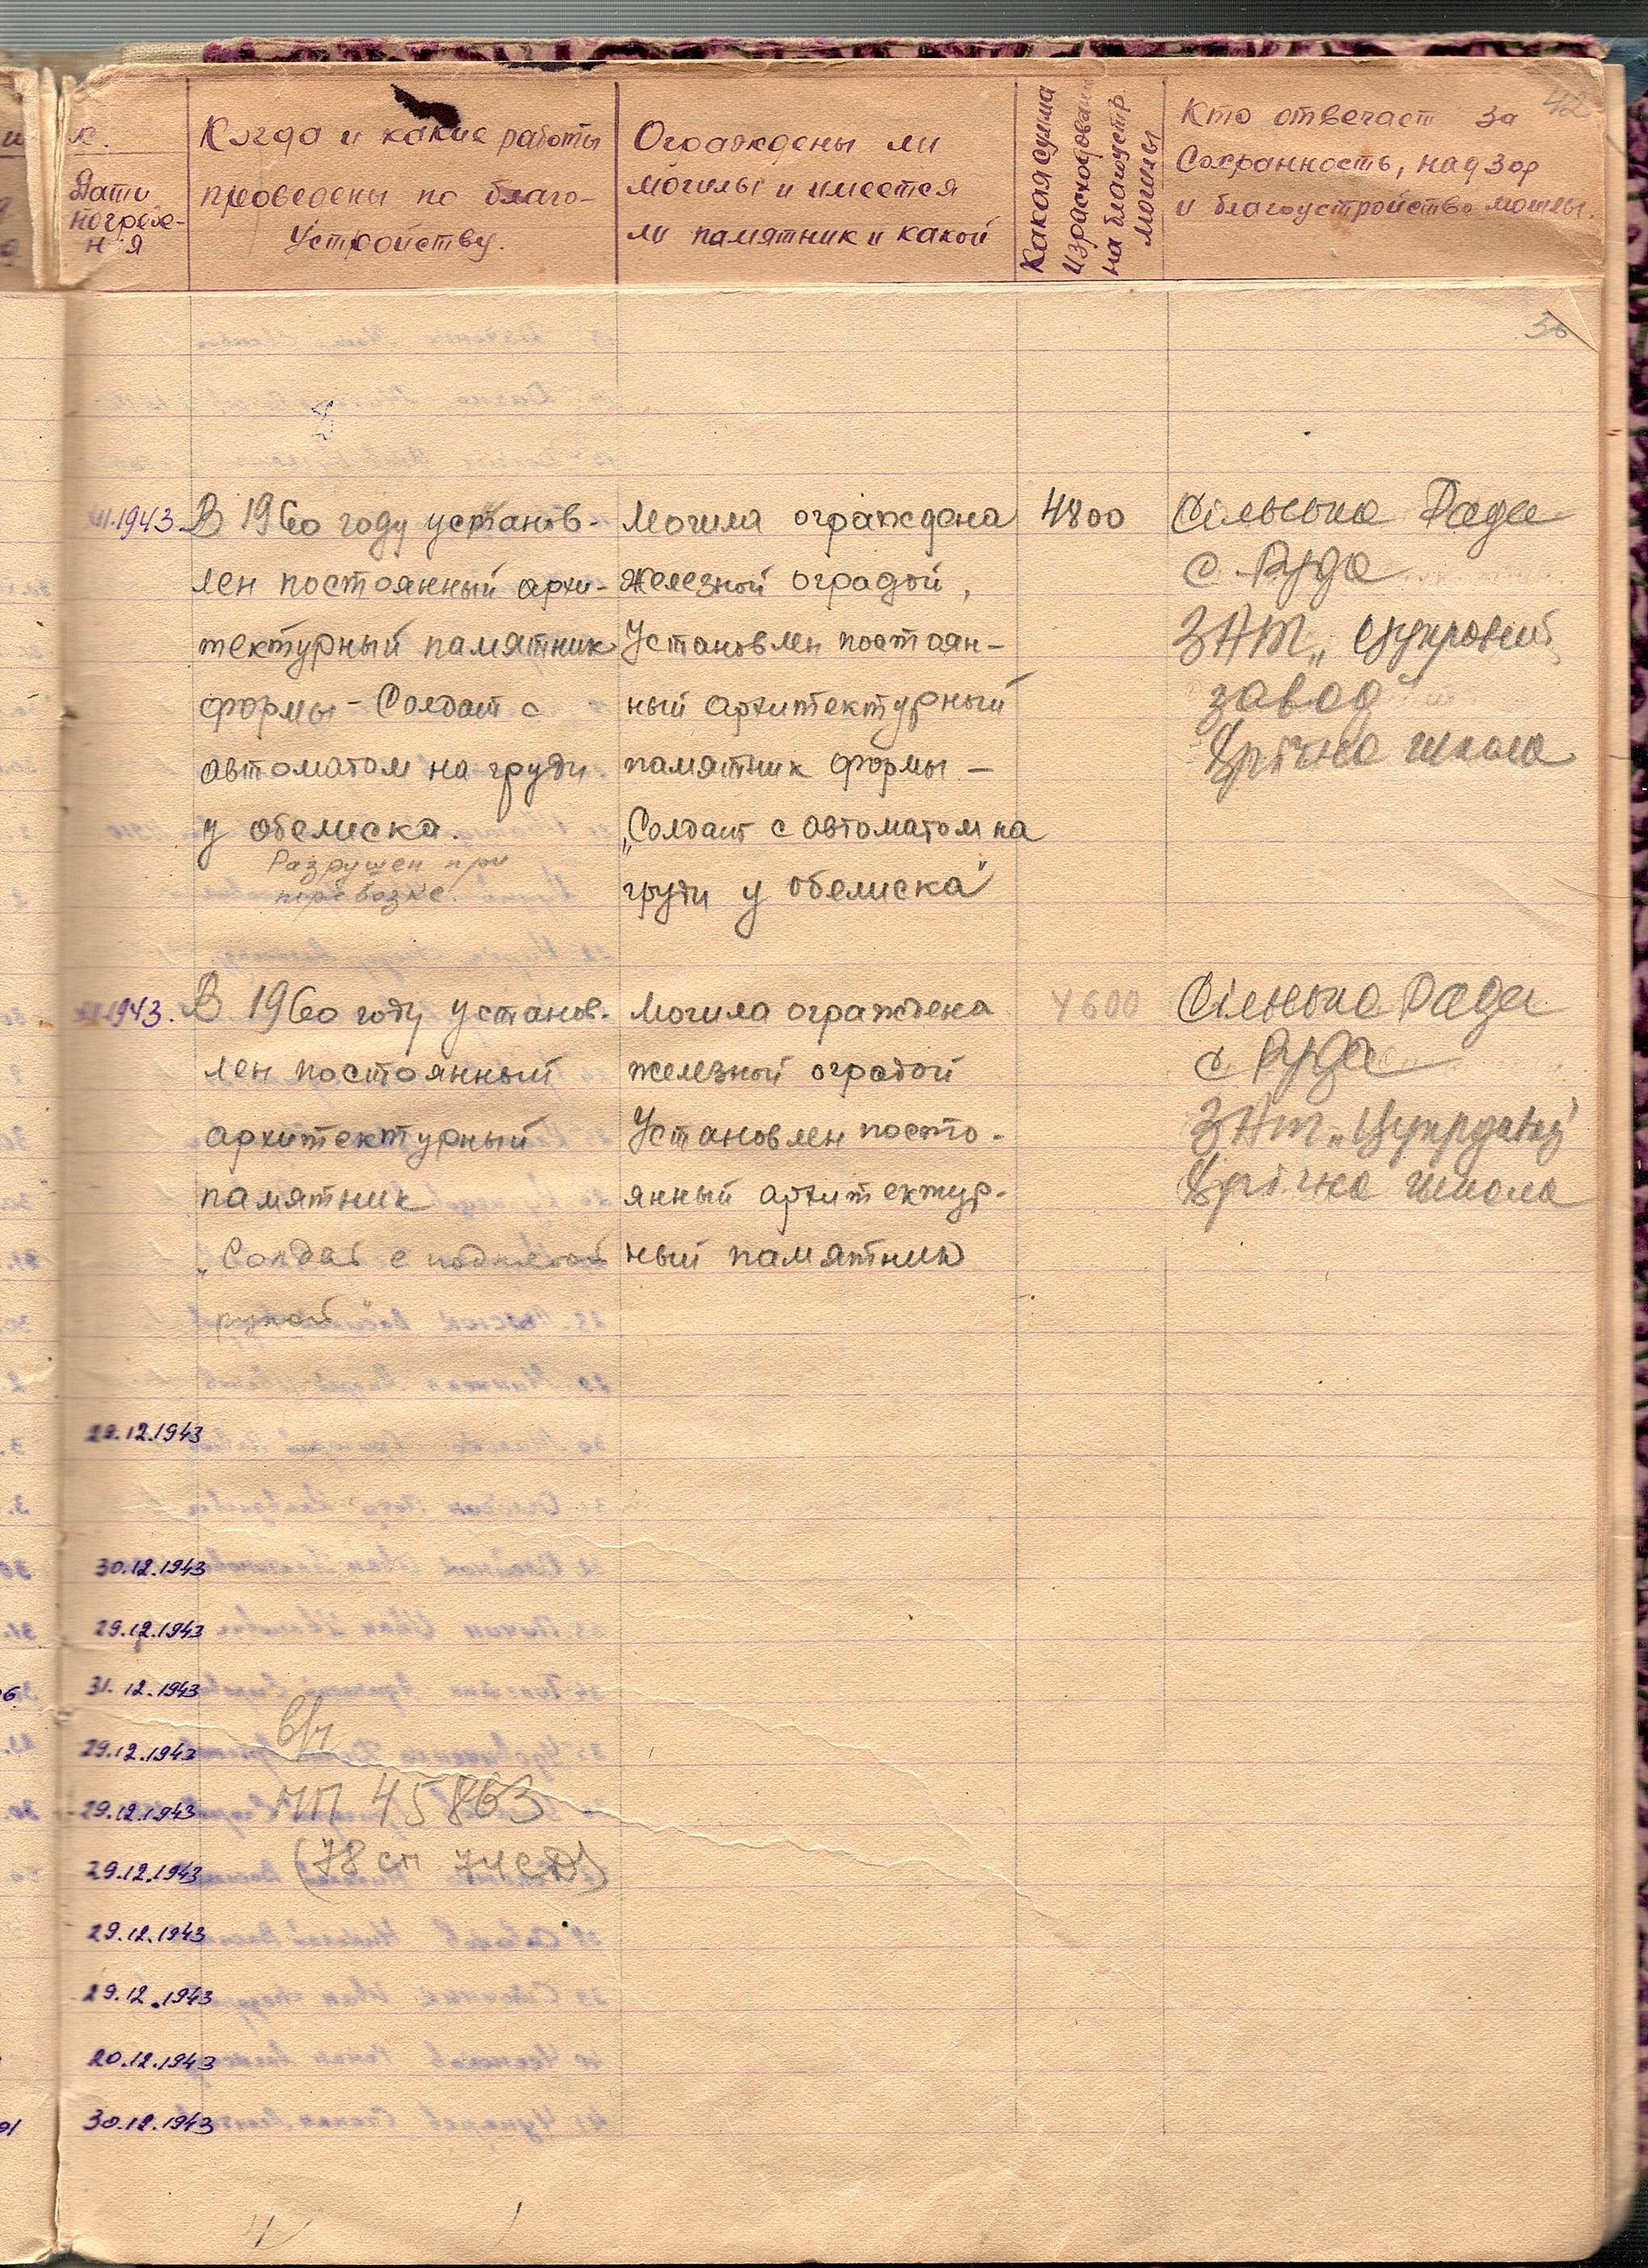 42
Дати
погребе-
н'я
Когда и какие работы
проведены по благо-
устройству.
Ограждены ли
могилы и имеется
ли памятник и какой
Какая сумма
израсходована
на благоустр.
могилы
Кто отвечает за
Сохранность, надзор
и благоустройство могилы.
1943
В 1960 году установ-
лен постоянный архи-
тектурный памятник
формы - Солдат с
автоматом на груди
у обелиска.
Разрушен при
перевозке.
Могила ограждена
железной оградой,
Установлен постоян-
ный архитектурный
памятник формы —
„Солдат с автоматом на
груди у обелиска"
4800
Сільська Рада
с. Руда
ЗАТ „Цукровий
завод"
8річна школа
1943.
В 1960 году установ-
лен постоянный
архитектурный
памятник
„Солдат с поднятой
рукой"
Могила ограждена
железной оградой
Установлен посто-
янный архитектур-
ный памятник
4600
Сільська Рада
с Руда
ЗАТ „Цукровий"
8річна школа
29.12.1943
30.12.1943
29.12.1943
31.12.1943
29.12.1943
29.12.1943
29.12.1943
29.12.1943
29.12.1943
20.12.1943
30.12.1943
в/ч
пп 45863
(78 сп 74 СД)